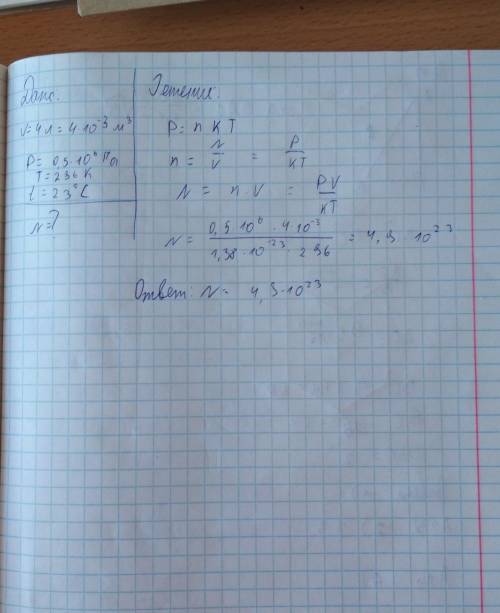 Дано:
V=4л=4·10⁻³ м³
P=0,5·10⁶ Па
T=296 К
t=23°C
N=?
Решение:
P=nKT
n = N/V = P/KT
N = n·V = PV/KT
N = 0,5·10⁶·4·10⁻³ / 1,38·10⁻²³·296 = 4,9·10²³
Ответ: N= 4,9·10²³